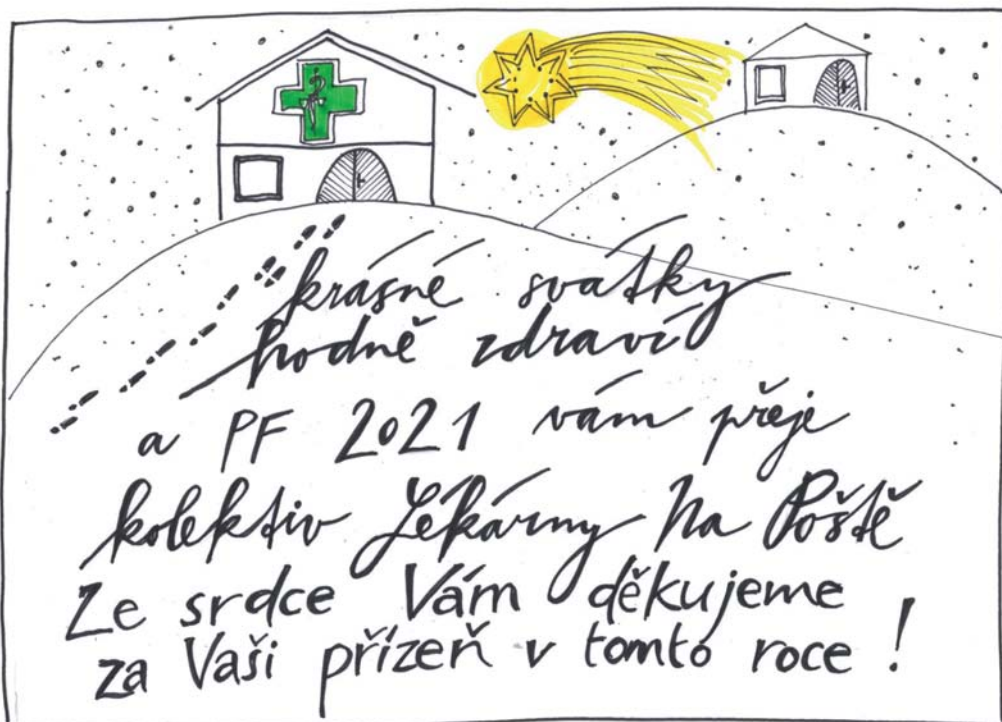 krásné svátky
hodně zdraví
a PF 2021 vám přeje
kolektiv Lékárny Na Poště
Ze srdce Vám děkujeme
za Vaši přízeň v tomto roce !